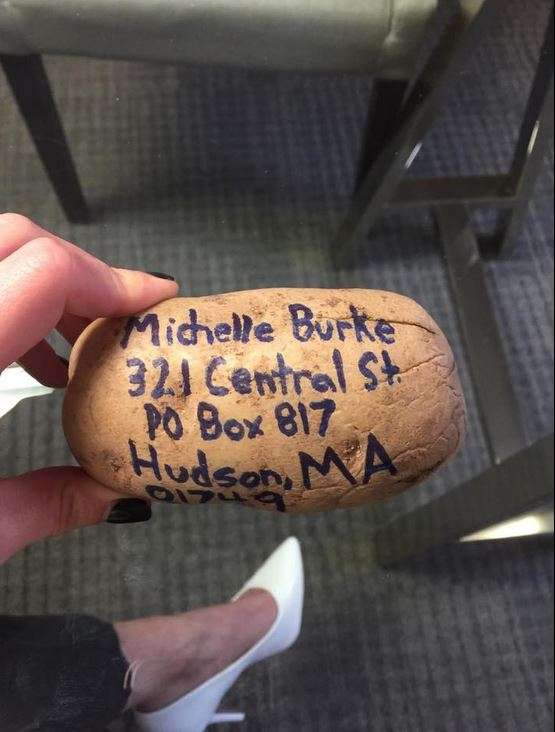 Michelle Burke
321 Central St.
PO Box 817
Hudson, MA
01749